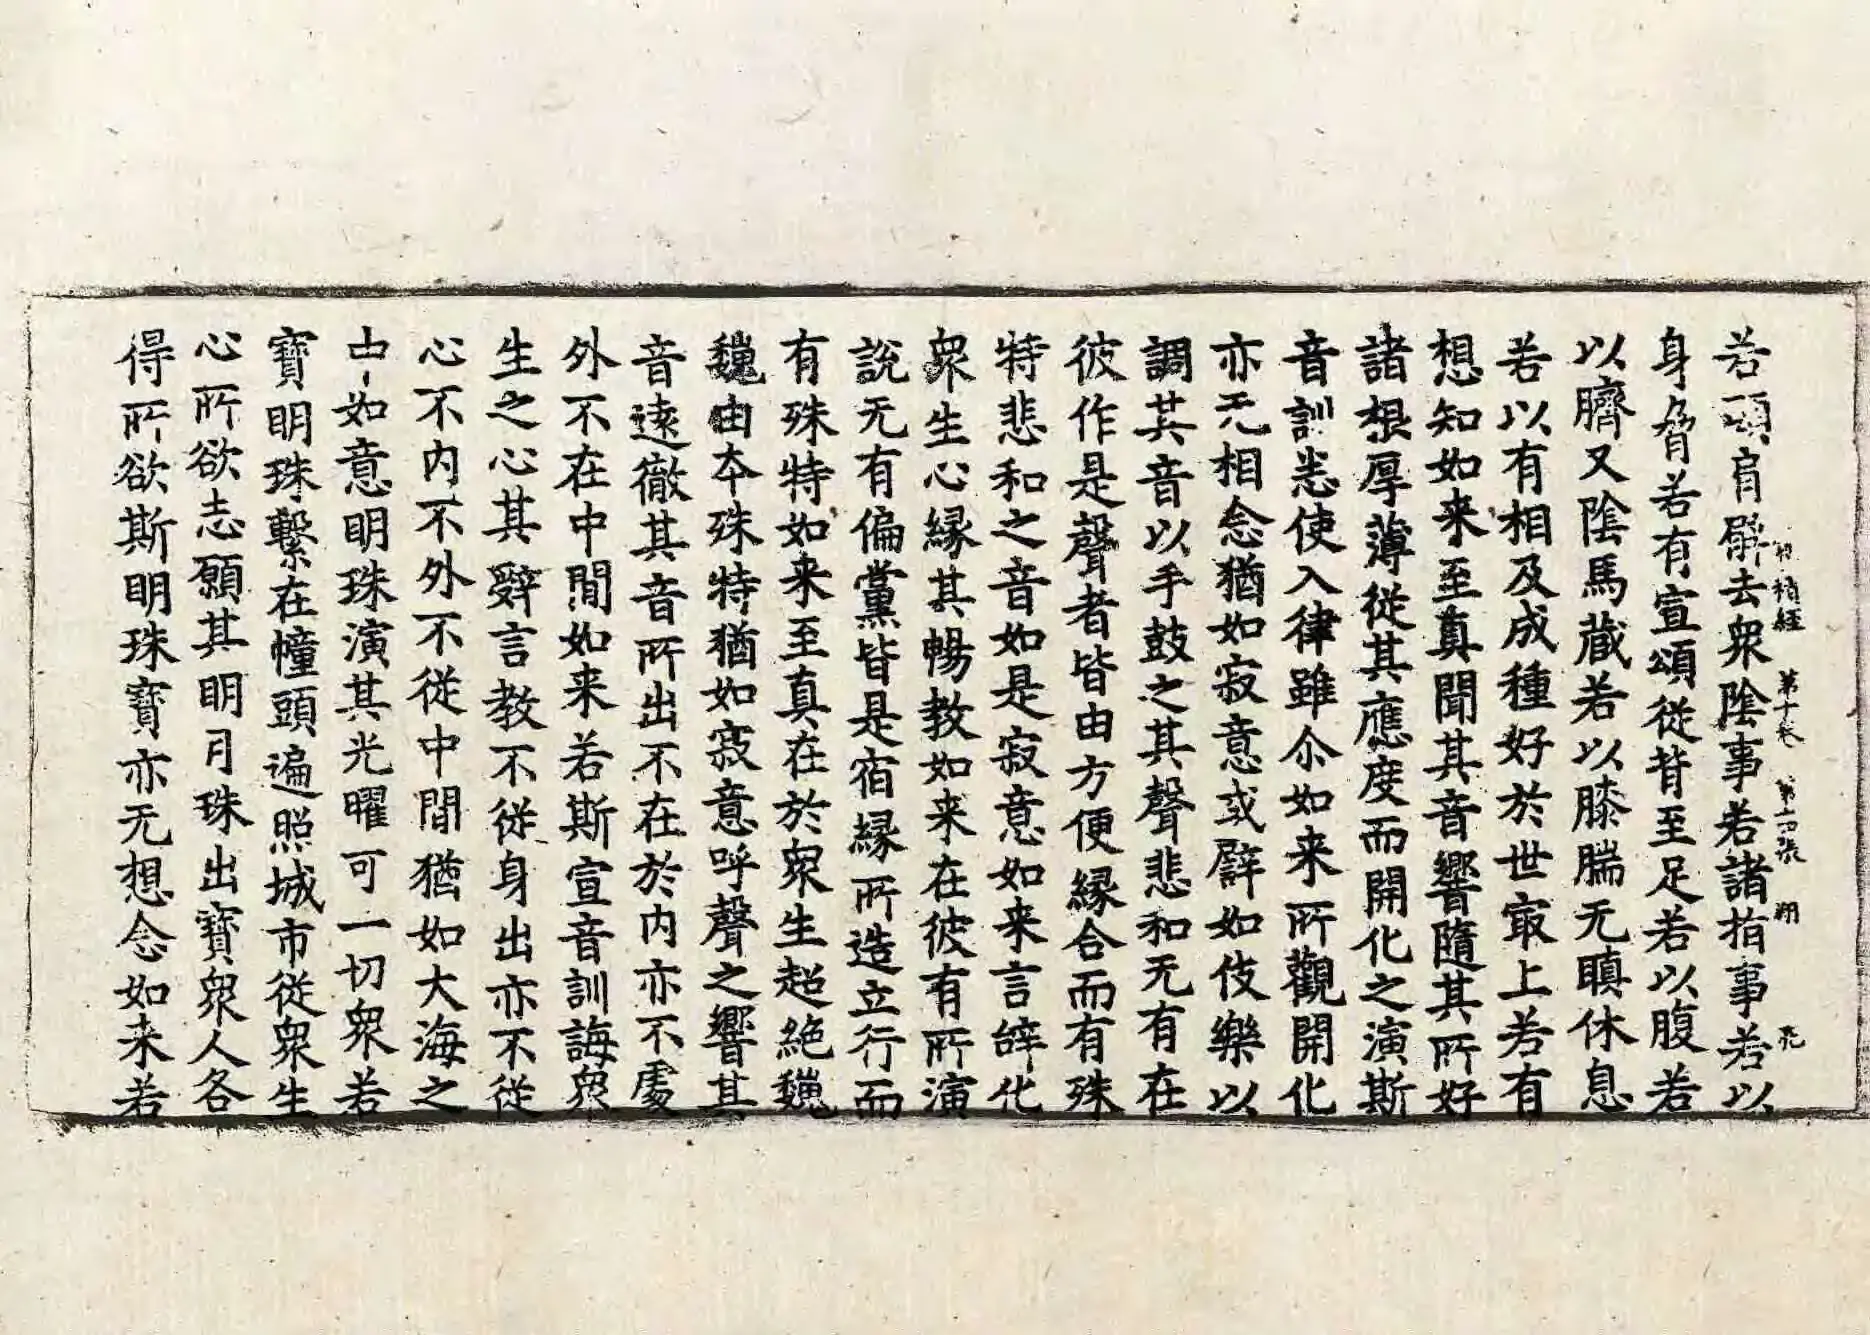 若頭肩臂去衆陰事若諸指事若以
寶積經 第十卷 第十四張 翔
身脅若有宣頌從昔至足若以腹若
以臍又陰馬蔵若以膝腨无瞋休息
若以有相及成種好於世㝡上若有
想知如来至真聞其音響隨其所好
諸根厚薄從其應度而開化之演斯
音訓恙使入律雖尒如来所觀開化
亦无相念猶如寂意或譬如伎樂以
調其音以手鼓之其聲悲和无有在
彼作是聲者皆由方便縁合而有殊
特悲和之音如是寂意如来言辝化
衆生心縁其暢教如来在彼有所演
說无有偏黨皆是宿縁所造立行而
有殊特如来至真在於衆生超絶巍
巍由夲殊特猶如寂意呼聲之響其
音遠徹其音所出不在於内亦不處
外不在中間如来若斯宣音訓誨衆
生之心其辝言教不從身出亦不從
心不内不外不從中間猶如大海之
中如意明珠演其光曜可一切衆若
寶明珠繫在幢頭遍照城市從衆生
心所欲志願其明月珠出寶衆人各
得所欲斯明珠寶亦无想念如来若